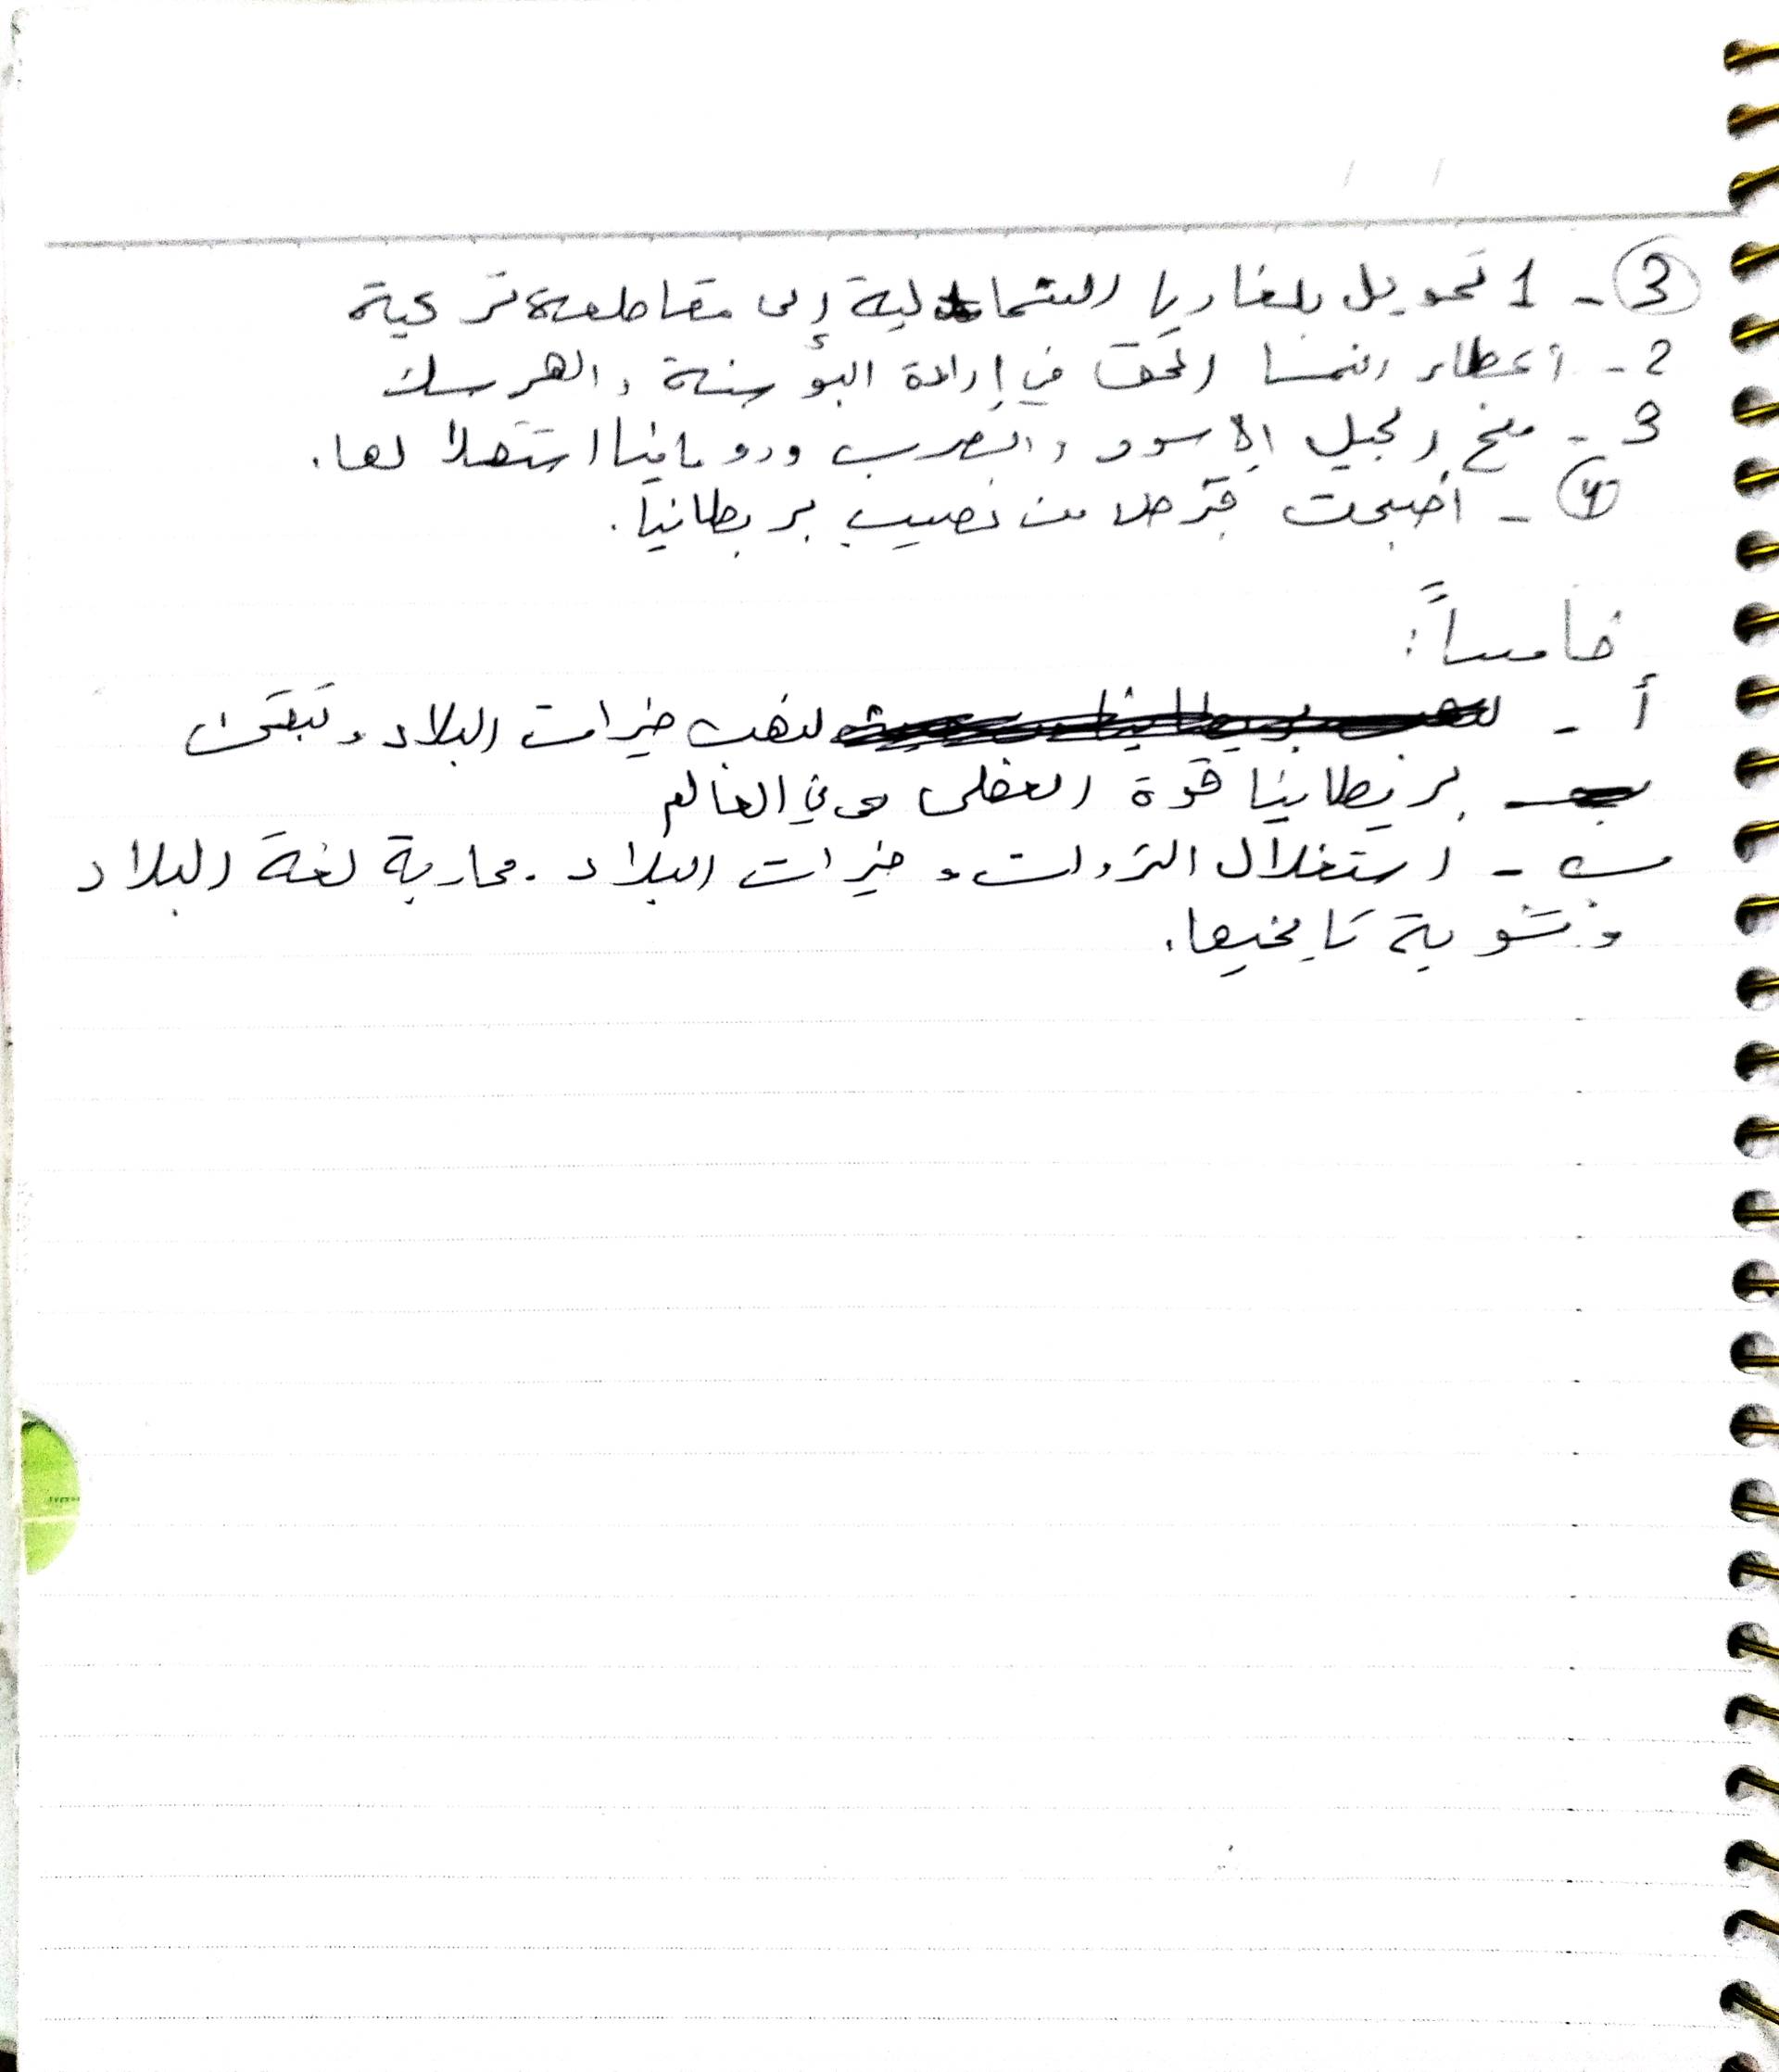 ③ - 1 تحويل بلغاريا الشمالية إلى مقاطعة تركية
2 - أعطاء النمسا الحق في إرادة البوسنة والهرسك
3 - منح الجبل الأسود والصرب ورومانيا استقلالها.
④ - أضبحت قبرص من نصيب بريطانيا.
خامساً:
أ - لنهب خيرات البلاد وتبقى
بريطانيا قوة العظمى في العالم
ب - استغلال الثروات وخيرات البلاد . محاربة لغة البلاد
وتشوية تايخيها.